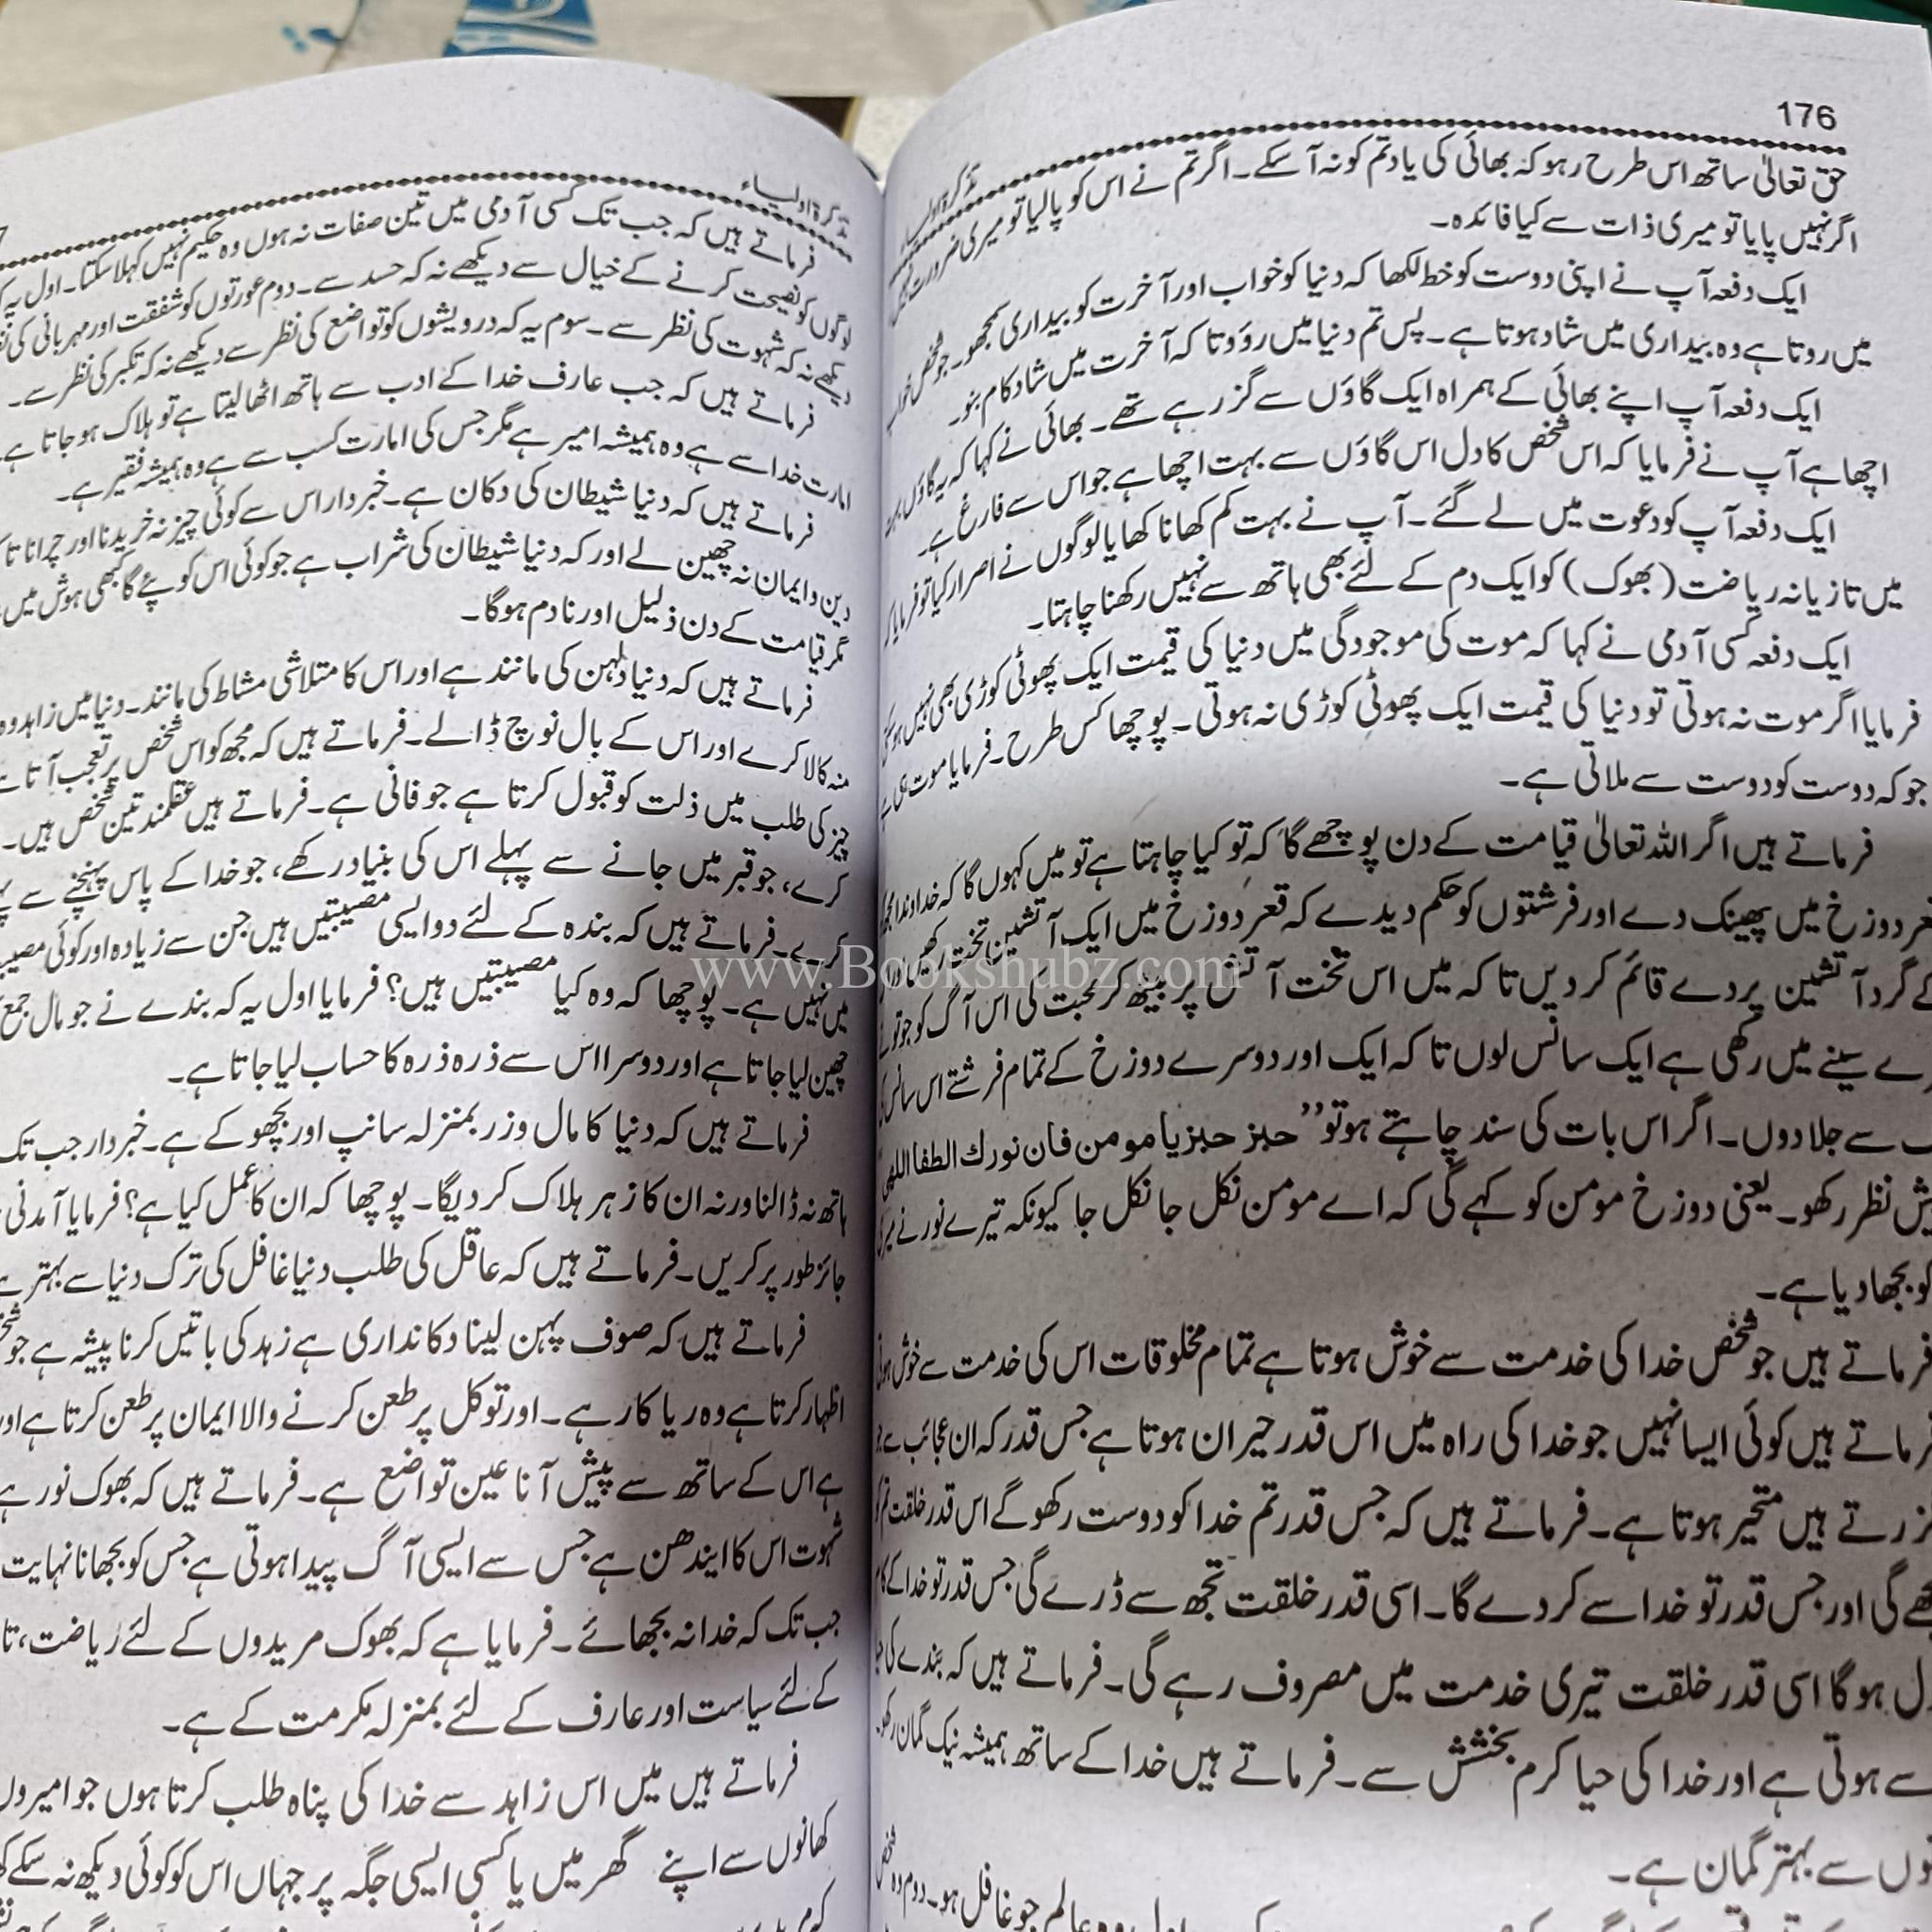 176
تذکرۃ اولیاء
حق تعالیٰ ساتھ اس طرح رہو کہ بھائی کی یاد تم کو نہ آ سکے۔ اگر تم نے اس کو پا لیا تو میری ضرورت نہیں
اگر نہیں پایا تو میری ذات سے کیا فائدہ۔
ایک دفعہ آپ نے اپنی دوست کو خط لکھا کہ دنیا کو خواب اور آخرت کو بیداری سمجھو۔ جو شخص خواب
میں روتا ہے وہ بیداری میں شاد ہوتا ہے۔ پس تم دنیا میں روؤ تا کہ آخرت میں شاد کام بنو۔
ایک دفعہ آپ اپنے بھائی کے ہمراہ ایک گاؤں سے گزر رہے تھے۔ بھائی نے کہا کہ یہ گاؤں بہت
اچھا ہے آپ نے فرمایا کہ اس شخص کا دل اس گاؤں سے بہت اچھا ہے جو اس سے فارغ ہے۔
ایک دفعہ آپ کو دعوت میں لے گئے۔ آپ نے بہت کم کھانا کھایا لوگوں نے اصرار کیا تو فرمایا کہ
میں تازیانہ ریاضت (بھوک) کو ایک دم کے لئے بھی ہاتھ سے نہیں رکھنا چاہتا۔
ایک دفعہ کسی آدمی نے کہا کہ موت کی موجودگی میں دنیا کی قیمت ایک پھوٹی کوڑی بھی نہیں
فرمایا اگر موت نہ ہوتی تو دنیا کی قیمت ایک پھوٹی کوڑی نہ ہوتی۔ پوچھا کس طرح۔ فرمایا موت ہی ہے
جو کہ دوست کو دوست سے ملاتی ہے۔
فرماتے ہیں اگر اللہ تعالیٰ قیامت کے دن پوچھے گا کہ تو کیا چاہتا ہے تو میں کہوں گا کہ خداوندا مجھے
دوزخ میں پھینک دے اور فرشتوں کو حکم دیدے کہ قعر دوزخ میں ایک آتشین تخت رکھیں
گرد آتشین پردے قائم کر دیں تا کہ میں اس تخت آتش پر بیٹھ کر محبت کی اس آگ کو جو تو نے
سینے میں رکھی ہے ایک سانس لوں تا کہ ایک اور دوسرے دوزخ کے تمام فرشتے اس سانس کی
سے جلا دوں۔ اگر اس بات کی سند چاہتے ہو تو ”حبز حبز یا مومن فان نورك الطفا اللهی
نظر رکھو۔ یعنی دوزخ مومن کو کہے گی کہ اے مومن نکل جا نکل جا کیونکہ تیرے نور نے میری
کو بجھا دیا ہے۔
فرماتے ہیں جو شخص خدا کی خدمت سے خوش ہوتا ہے تمام مخلوقات اس کی خدمت سے خوش ہوتی
فرماتے ہیں کوئی ایسا نہیں جو خدا کی راہ میں اس قدر حیران ہوتا ہے جس قدر کہ ان عجائب سے جو
ہیں متحیر ہوتا ہے۔ فرماتے ہیں کہ جس قدر تم خدا کو دوست رکھو گے اس قدر خلقت تم کو
گی اور جس قدر تو خدا سے کر دے گا۔ اسی قدر خلقت تجھ سے ڈرے گی جس قدر تو خدا کے کام
ہو گا اسی قدر خلقت تیری خدمت میں مصروف رہے گی۔ فرماتے ہیں کہ بندے کی حیا
سے ہوتی ہے اور خدا کی حیا کرم بخشش سے۔ فرماتے ہیں خدا کے ساتھ ہمیشہ نیک گمان رکھو۔
سے بہتر گمان ہے۔
عالم جو غافل ہو۔ دوم وہ شخص
تذکرۃ اولیاء
فرماتے ہیں کہ جب تک کسی آدمی میں تین صفات نہ ہوں وہ حکیم نہیں کہلا سکتا۔ اول یہ کہ
لوگوں کو نصیحت کرنے کے خیال سے دیکھے نہ کہ حسد سے۔ دوم عورتوں کو شفقت اور مہربانی کی
دیکھے نہ کہ شہوت کی نظر سے۔ سوم یہ کہ درویشوں کو تواضع کی نظر سے دیکھے نہ کہ تکبر کی نظر سے۔
فرماتے ہیں کہ جب عارف خدا کے ادب سے ہاتھ اٹھا لیتا ہے تو ہلاک ہو جاتا ہے
امارت خدا سے ہے وہ ہمیشہ امیر ہے مگر جس کی امارت کسب سے ہے وہ ہمیشہ فقیر ہے۔
فرماتے ہیں کہ دنیا شیطان کی دکان ہے۔ خبردار اس سے کوئی چیز نہ خریدنا اور چرانا تا کہ
دین و ایمان نہ چھین لے اور کہ دنیا شیطان کی شراب ہے جو کوئی اس کو پئے گا کبھی ہوش میں
مگر قیامت کے دن ذلیل اور نادم ہو گا۔
فرماتے ہیں کہ دنیا دلہن کی مانند ہے اور اس کا متلاشی مشاط کی مانند۔ دنیا میں زاہد وہ
منہ کالا کرے اور اس کے بال نوچ ڈالے۔ فرماتے ہیں کہ مجھ کو اس شخص پر تعجب آتا ہے
چیز کی طلب میں ذلت کو قبول کرتا ہے جو فانی ہے۔ فرماتے ہیں عقلمند تین شخص ہیں۔
کرے، جو قبر میں جانے سے پہلے اس کی بنیاد رکھے، جو خدا کے پاس پہنچنے سے
کرے۔ فرماتے ہیں کہ بندہ کے لئے دو ایسی مصیبتیں ہیں جن سے زیادہ اور کوئی
میں نہیں ہے۔ پوچھا کہ وہ کیا مصیبتیں ہیں؟ فرمایا اول یہ کہ بندے نے جو مال جمع
چھین لیا جاتا ہے اور دوسرا اس سے ذرہ ذرہ کا حساب لیا جاتا ہے۔
فرماتے ہیں کہ دنیا کا مال و زر بمنزلہ سانپ اور بچھو کے ہے۔ خبردار جب تک
ہاتھ نہ ڈالنا ورنہ ان کا زہر ہلاک کر دیگا۔ پوچھا کہ ان کا عمل کیا ہے؟ فرمایا آمدنی
جائز طور پر کریں۔ فرماتے ہیں کہ عاقل کی طلب دنیا غافل کی ترک دنیا سے بہتر ہے
فرماتے ہیں کہ صوف پہن لینا دکانداری ہے زہد کی باتیں کرنا پیشہ ہے جو
اظہار کرتا ہے وہ ریا کار ہے۔ اور توکل پر طعن کرنے والا ایمان پر طعن کرتا ہے اور
ہے اس کے ساتھ سے پیش آنا عین تواضع ہے۔ فرماتے ہیں کہ بھوک نور ہے
شہوت اس کا ایندھن ہے جس سے ایسی آگ پیدا ہوتی ہے جس کو بجھانا نہایت
جب تک کہ خدا نہ بجھائے۔ فرمایا ہے کہ بھوک مریدوں کے لئے ریاضت،
کے لئے سیاست اور عارف کے لئے بمنزلہ مکرمت کے ہے۔
فرماتے ہیں میں اس زاہد سے خدا کی پناہ طلب کرتا ہوں جو امیروں
کھانوں سے اپنے گھر میں یا کسی ایسی جگہ پر جہاں اس کو کوئی دیکھ نہ سکے
www.Bookshubz.com